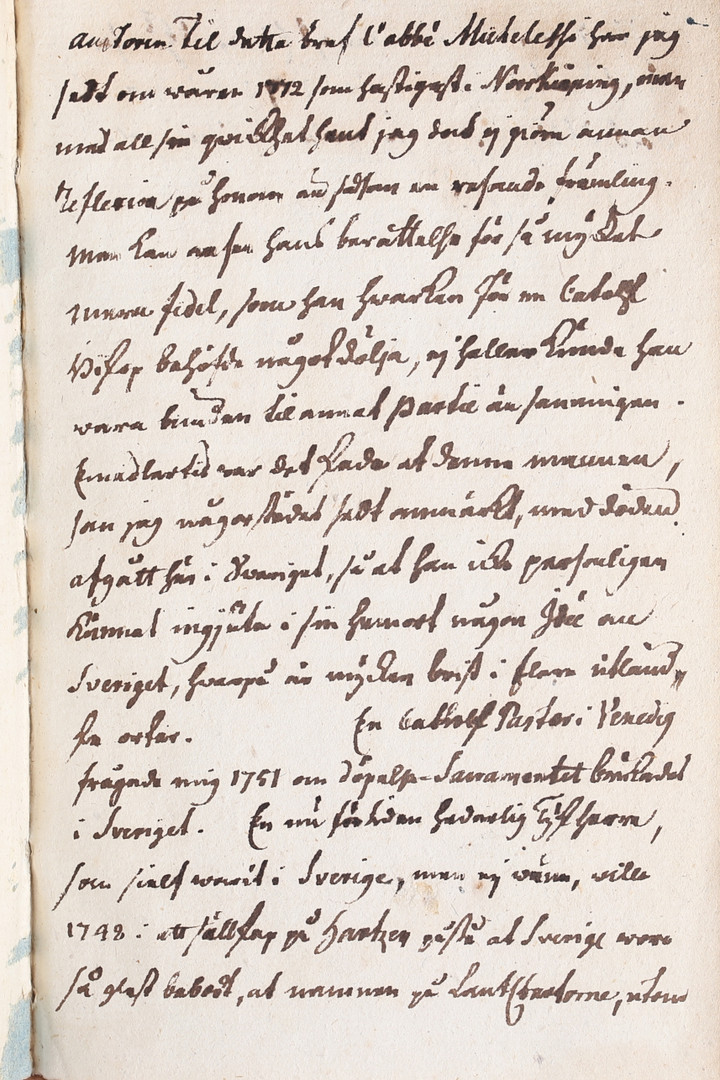 auctoren til detta bref l'abbé Michelessi har jag
sedt om wåren 1772 som hastigast i Norrkiöping, men
med all sin qwickhet hant jag dock ej giöra annan
reflexion på honom än såsom en resande främling.
Man kan anse hans berättelse för så mycket
mera fidel, som han hwarken för en Catolsk
Biskop behöfde något dölja, ej heller kunde han
wara bunden til annat Partie än sanningen.
Emedlertid war det skada at denne mannen,
som jag någorstädes sedt anmärkt, med döden
afgått här i Sweriget, så at han icke personligen
kunnat ingjuta i sin hemort någon Idée om
Sveriget, hwarpå är mycken brist i flera utländ„
ska orter. En Catholsk Pastor i Venedig
frågade mig 1751 om döpelse-Sacramentet brukades
i Sveriget. En nu för tiden hederlig Tysk herre,
som sielf warit i Sverige, men ej wän, wille
1748 i ett sällskap på Hartzen påstå at Sverige wore
så glest bebodt, at namnen på Landtchartorne, utom